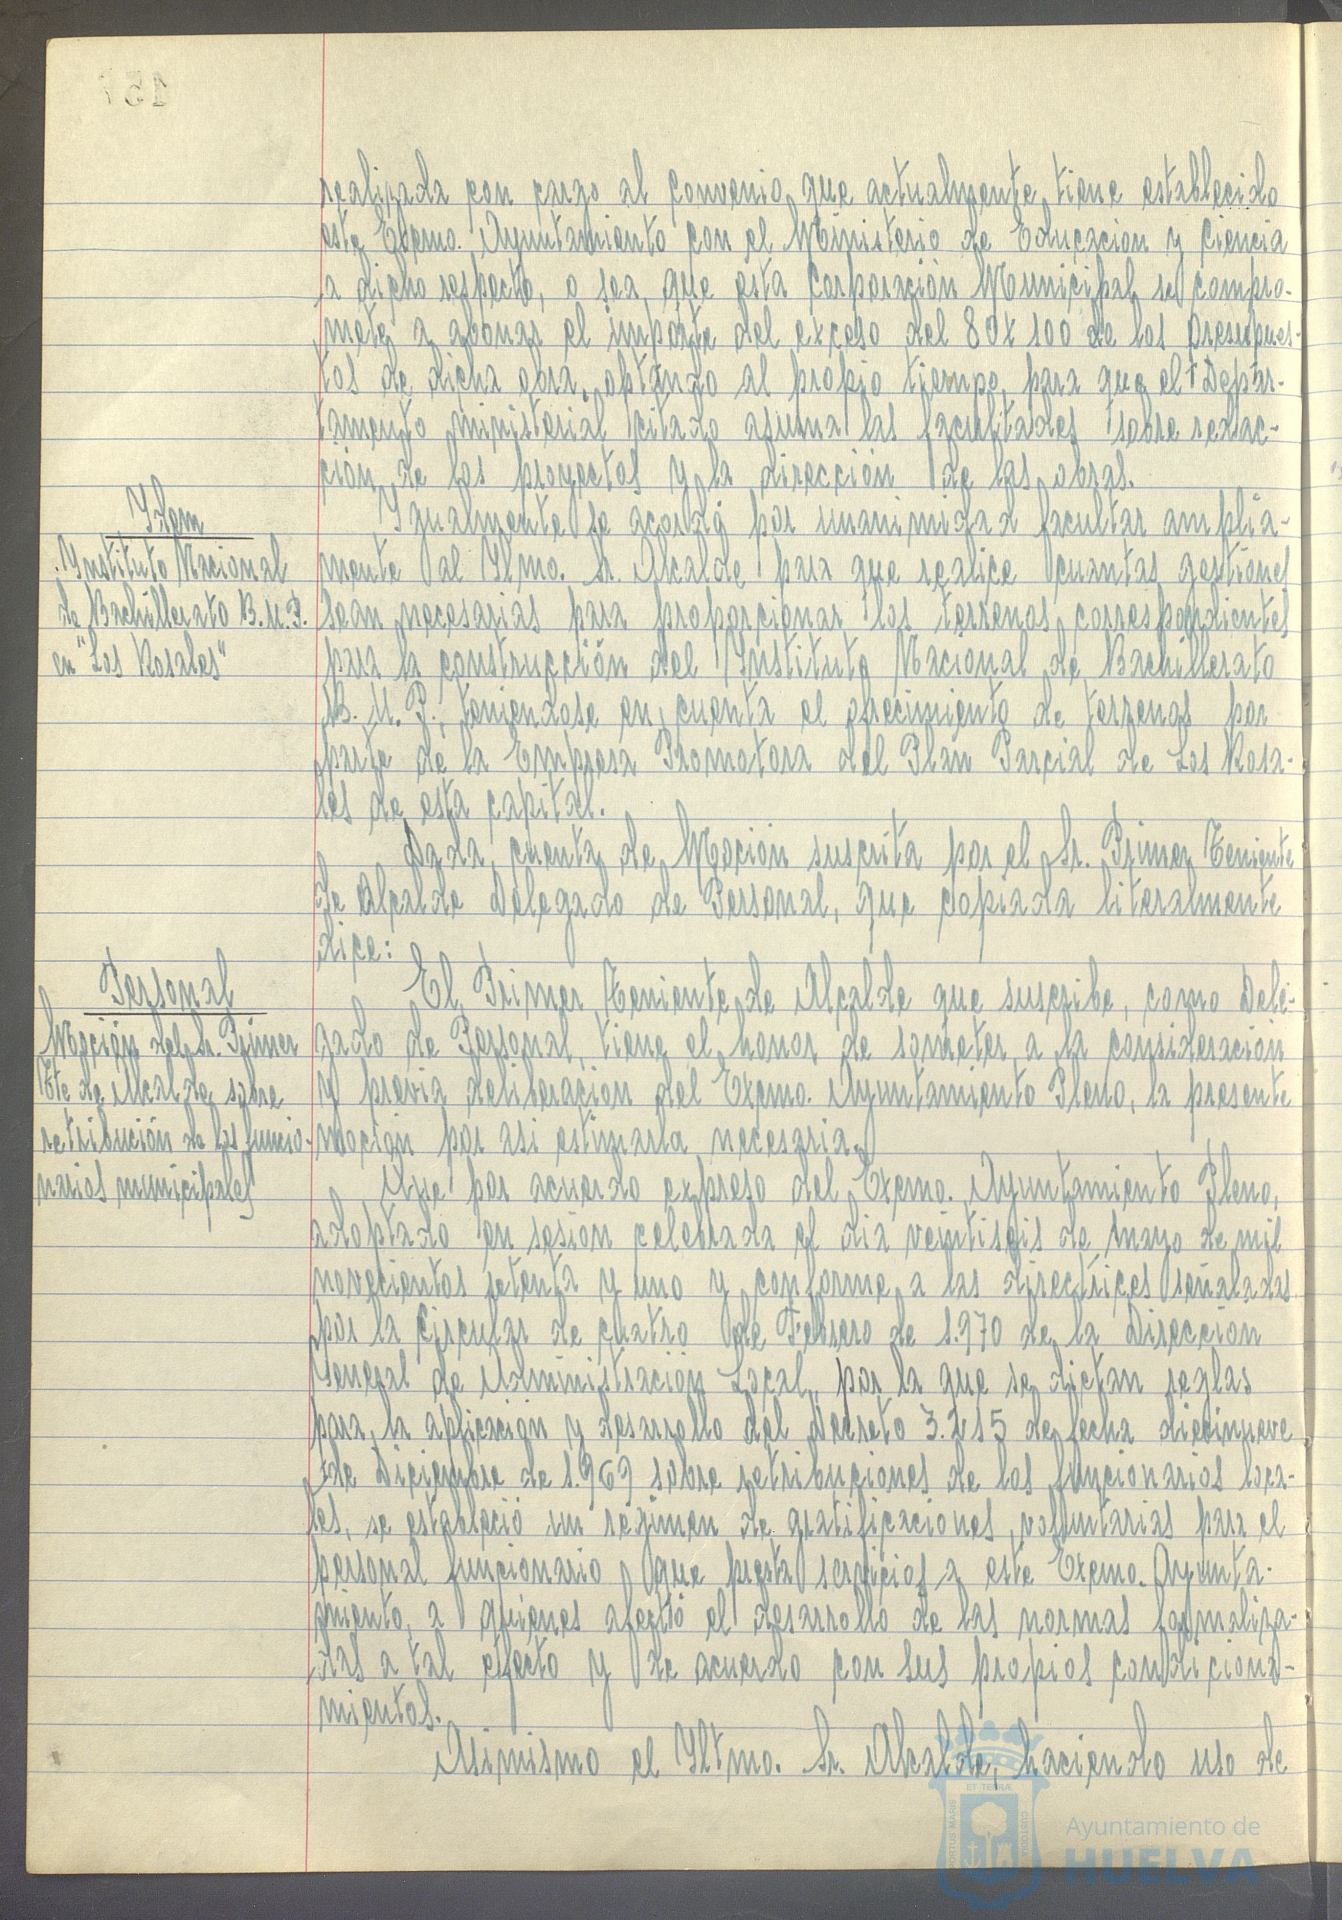 realizada con cargo al convenio que actualmente tiene establecido
este Excmo. Ayuntamiento con el Ministerio de Educacion y Ciencia
a dicho respecto, o sea, que esta Corporación Municipal se compro-
mete a abonar el importe del exceso del 80% 100 de los presupues-
tos de dicha obra, optando al propio tiempo, para que el Depar-
tamento ministerial citado asuma las facultades sobre redac-
ción de los proyectos y la dirección de las obras.
Item
Instituto Nacional
de Bachillerato B.U.P.
en "Los Rosales"
Igualmente se acordó por unanimidad facultar amplia-
mente al Ilmo. Sr. Alcalde para que realice cuantas gestiones
sean necesarias para proporcionar los terrenos correspondientes
para la construcción del Instituto Nacional de Bachillerato
B.U.P., teniendose en cuenta el ofrecimiento de terrenos por
parte de la Empresa Promotora del Plan Parcial de Los Rosa-
les de esta capital.
Dada cuenta de Moción suscrita por el Sr. Primer Teniente
de Alcalde Delegado de Personal, que copiada literalmente
dice:
Personal
Moción del Sr. Primer
Tte de Alcalde sobre
retribución de los funcio-
narios municipales
El Primer Teniente de Alcalde que suscribe, como Dele-
gado de Personal, tiene el honor de someter a la consideración
y previa deliberación del Excmo. Ayuntamiento Pleno, la presente
moción por asi estimarla necesaria.
Que por acuerdo expreso del Excmo. Ayuntamiento Pleno,
adoptado en sesión celebrada el dia veintiseis de mayo de mil
novecientos setenta y uno y conforme a las directrices señaladas
por la Circular de cuatro de Febrero de 1.970 de la Dirección
General de Administración Local, por la que se dictan reglas
para la aplicación y desarrollo del Decreto 3.215 de fecha diecinueve
de Diciembre de 1.969 sobre retribuciones de los funcionarios loca-
les, se estableció un regimen de gratificaciones voluntarias para el
personal funcionario que presta servicios a este Excmo. Ayunta-
miento, a quienes afectó el desarrollo de las normas formaliza-
das a tal efecto y de acuerdo con sus propios condiciona-
mientos.
Asimismo el Iltmo. Sr. Alcalde, haciendo uso de
PORTUS MARIS
ET TERRAE
CUSTODIA
Ayuntamiento de
HUELVA
157